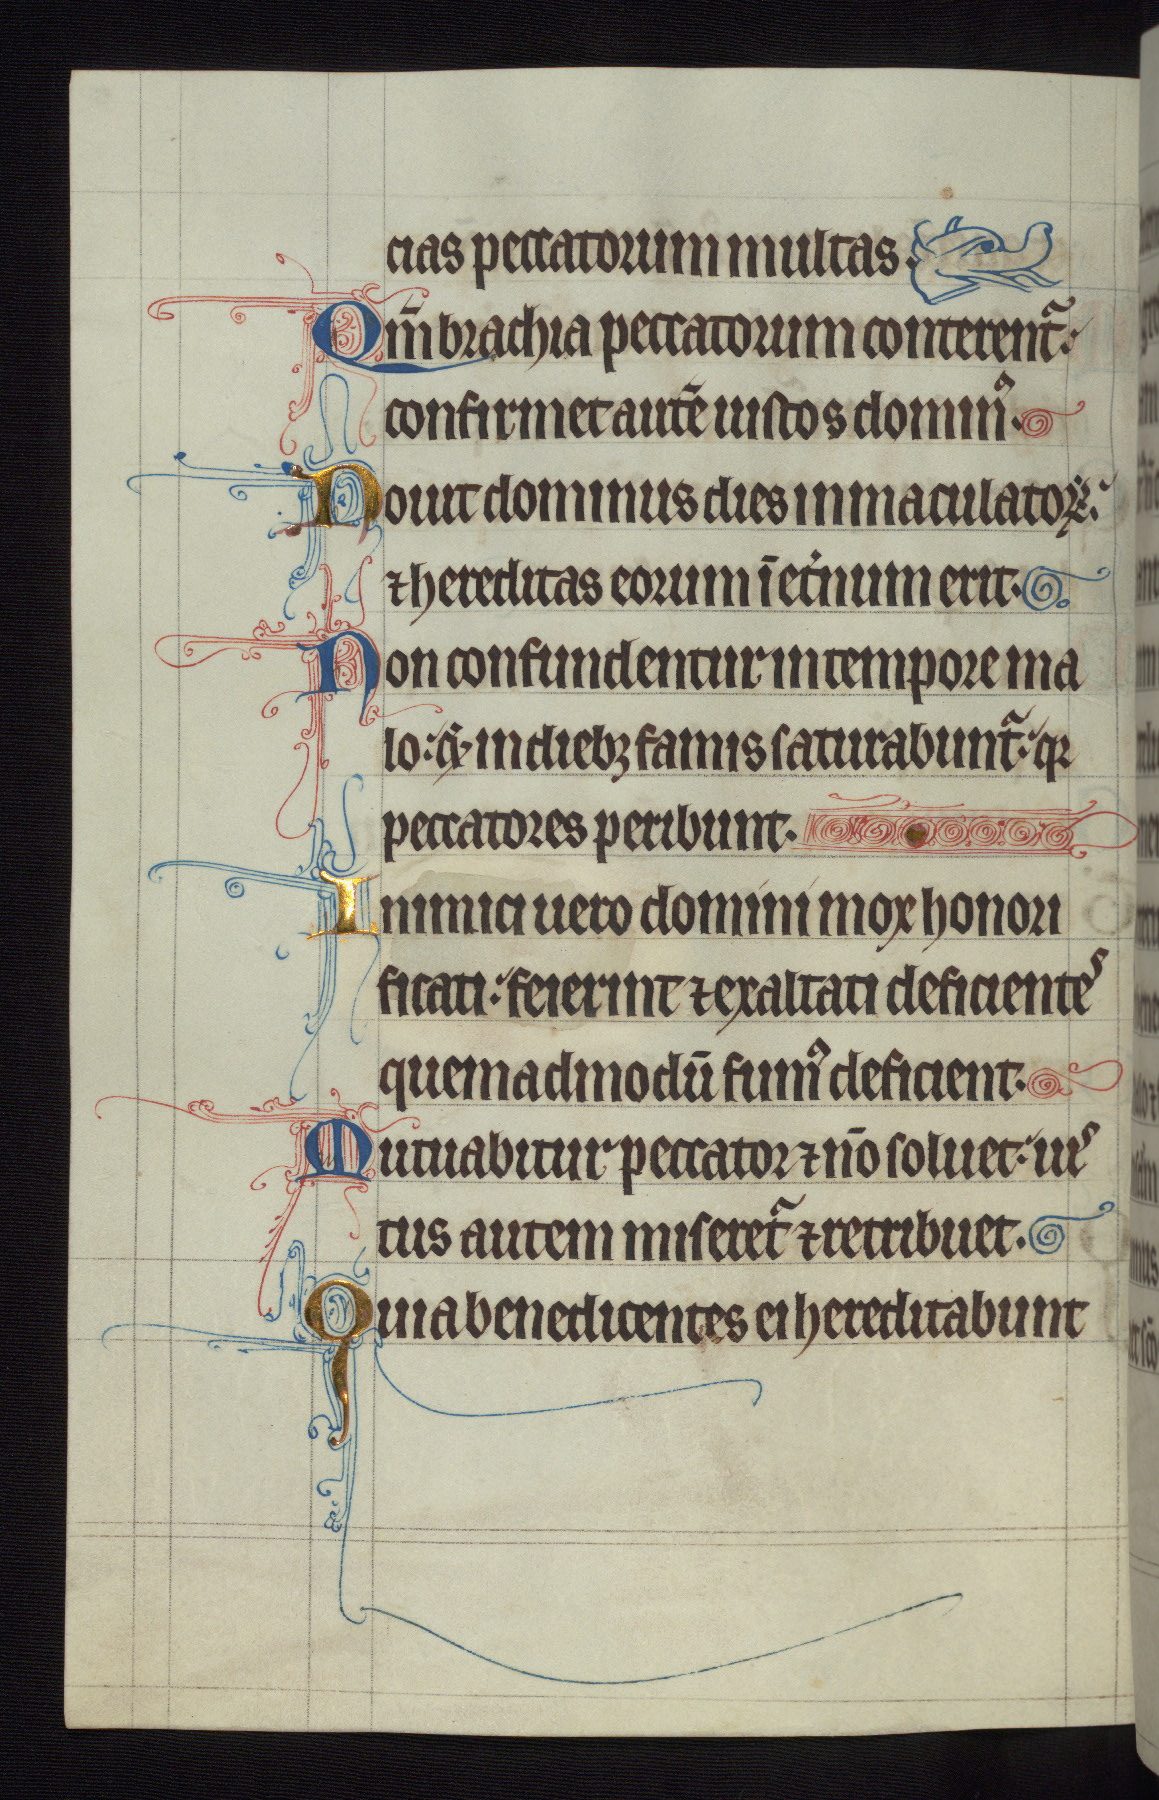 cias peccatorum multas.
Qm̄ brachia peccatorum conterent᷑:
confirmet autē iustos domin᷒.
Nouit dominus dies inmaculatoꝝ:
⁊ hereditas eorum ī et̾num erit.
Non confundentur in tempore ma
lo: ⁊ in diebꝫ famis saturabunt᷑: qꝛ
peccatores peribunt.
Inimici uero domini mox honori
ficati: feierint ⁊ exaltati deficientes
quemadmodū fum᷒ deficient.
Mutuabitur peccator ⁊ nō soluet: ius
tus autem miseret᷑ ⁊ retribuet.
Quia benedicentes ei hereditabunt